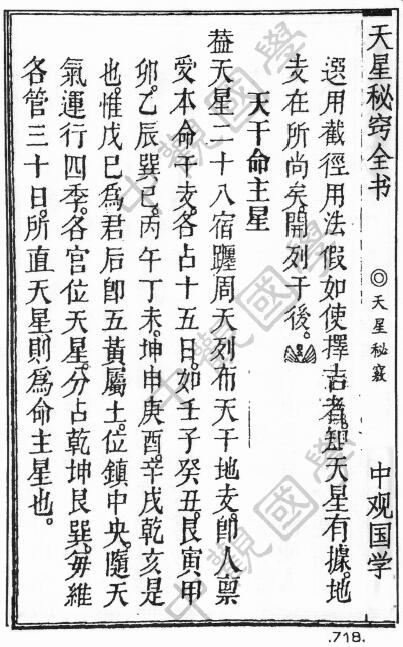 天星秘窍全书
◎天星秘竅
中观国学
選用截徑用法假如使擇吉者知天星有據。地
支在所尚矣。開列于後。
天干命主星
葢天星二十八宿躔周天列布天干地支。卽人禀
受本命干支。各占十五日。如壬子癸丑。艮寅甲
卯。乙辰巽巳。丙午丁未。坤申庚酉。辛戌乾亥是
也。惟戊巳爲君后卽五黃屬土。位鎮中央。隨天
氣運行四季。各官位天星。分占乾坤艮巽。每維
各管三十日。所直天星則爲命主星也。
.718.
中觀國學
中觀國學
中觀國學